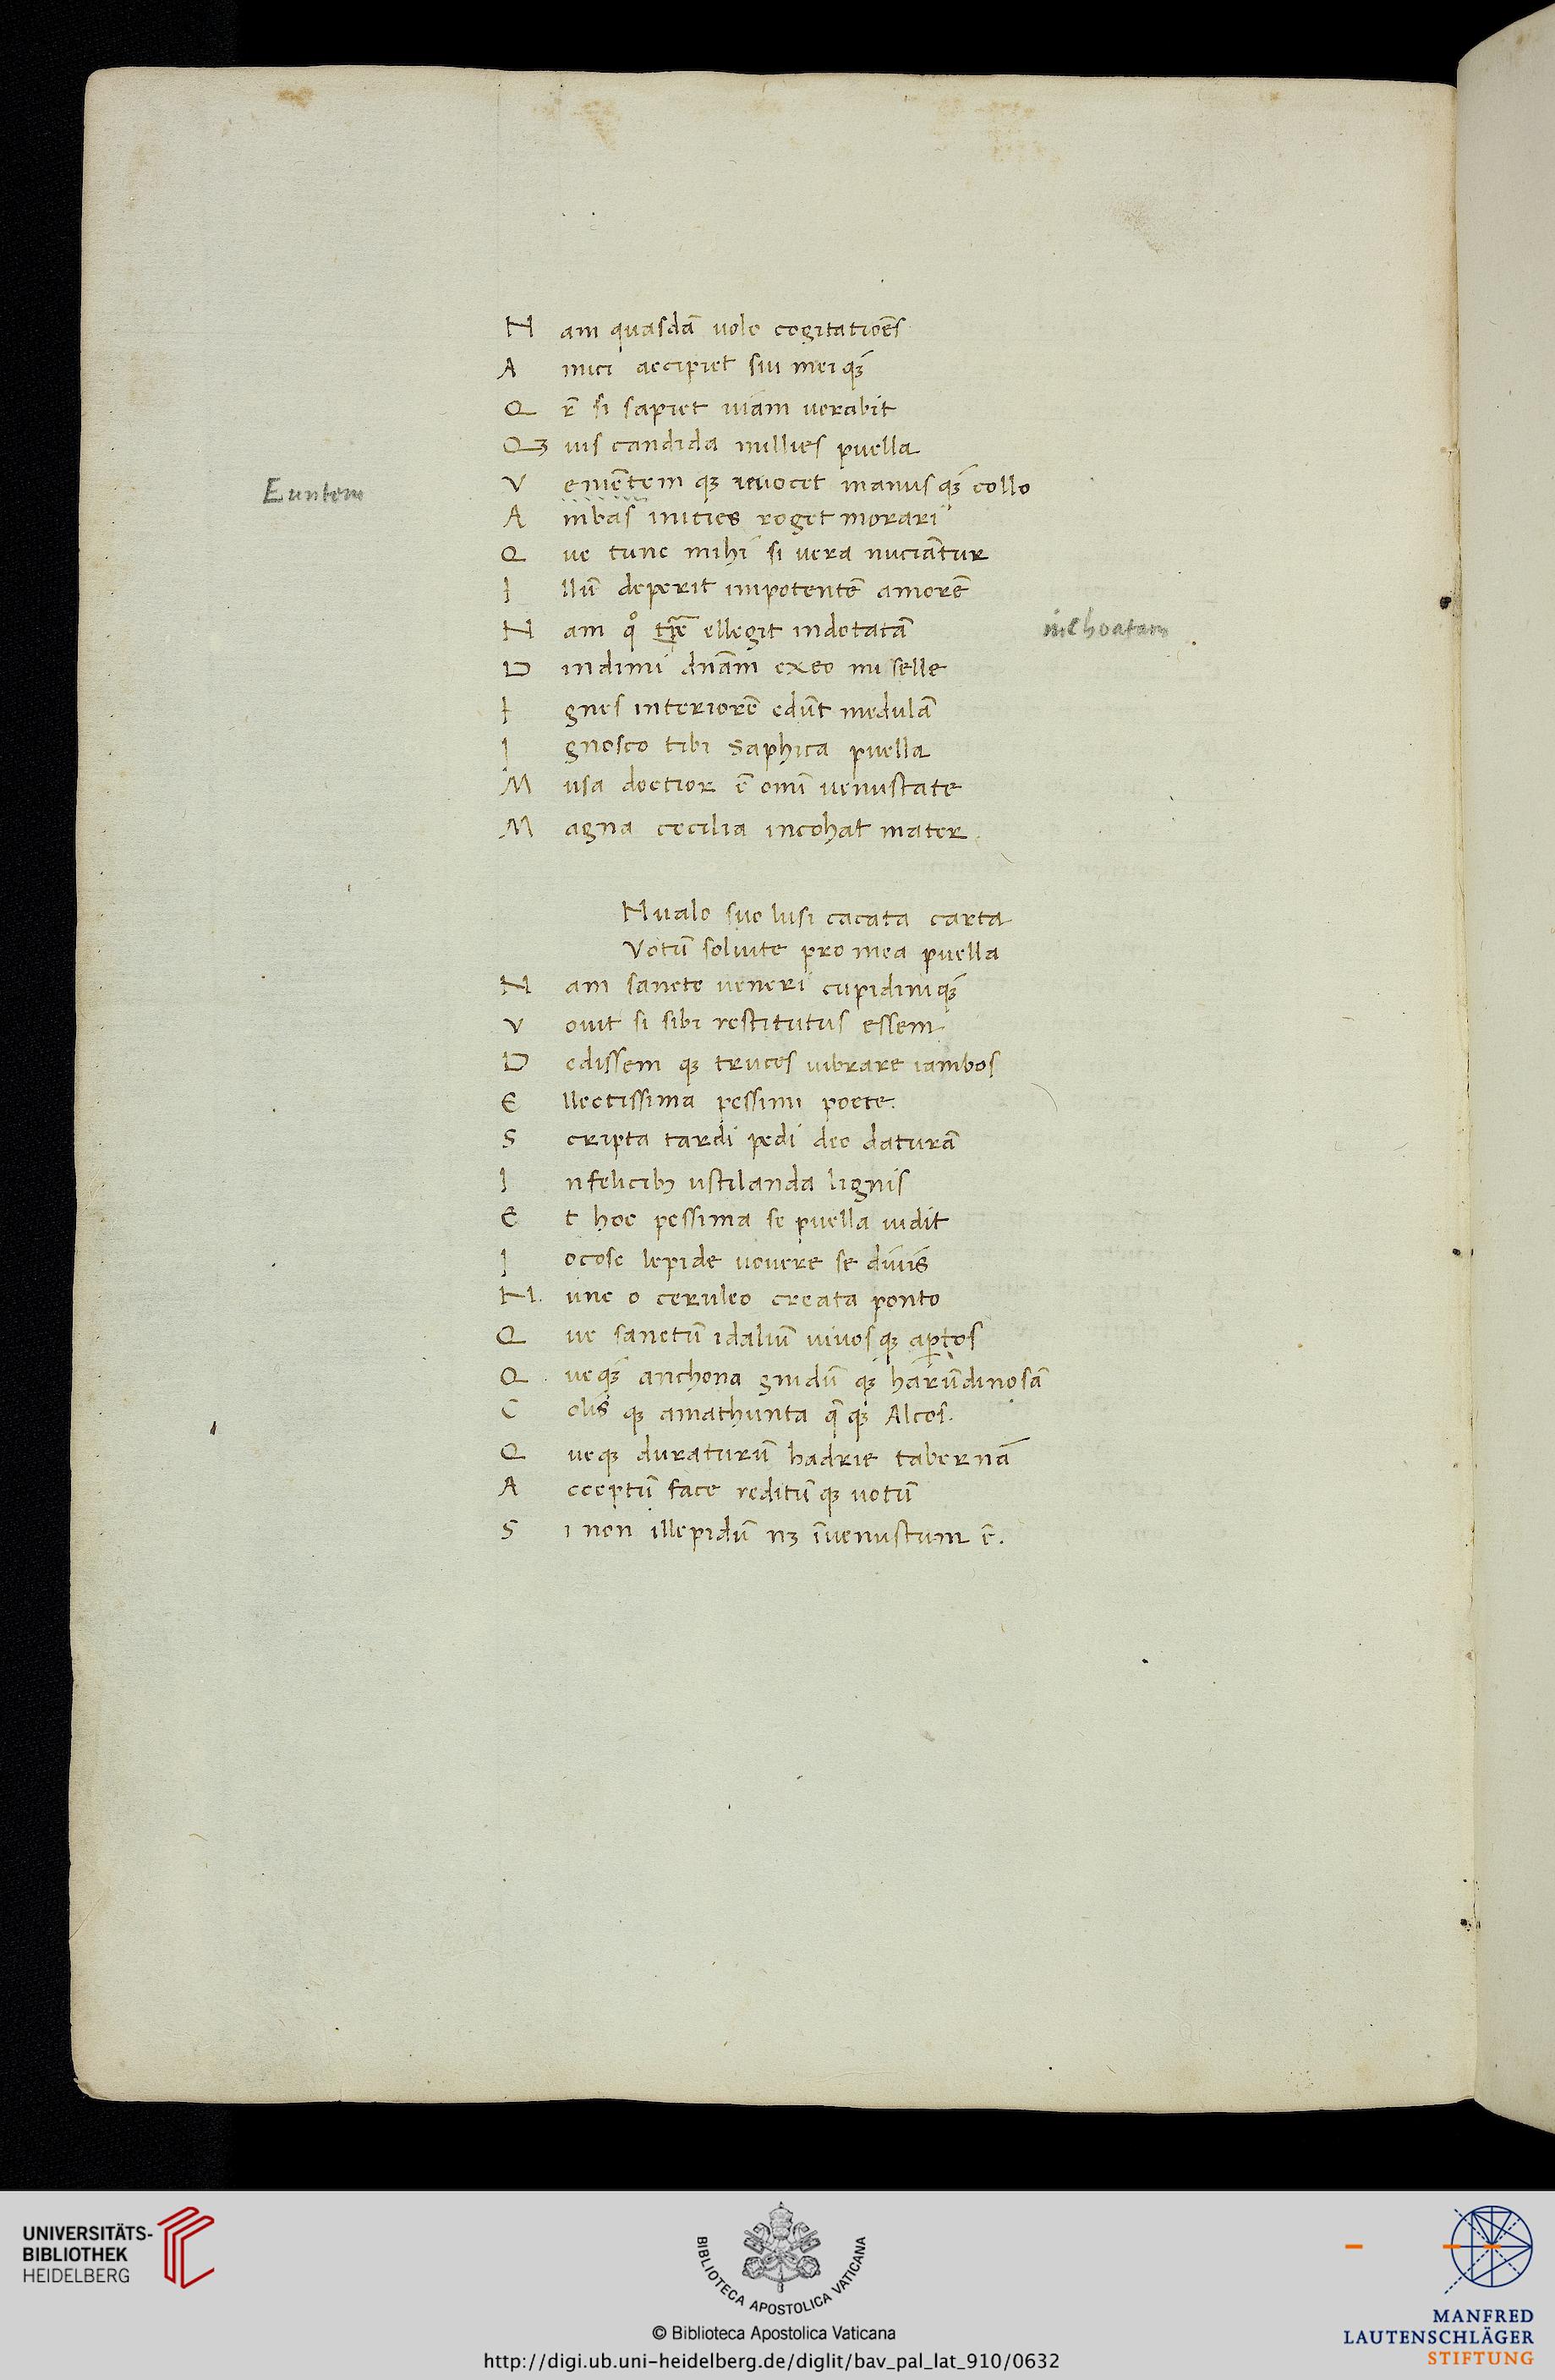 Nam quasdā uolo cogitatiōes
Amici accipiet sui meiqꝫ
Qr̄ si sapiet uiam uorabit
Qꝫuis candida millies puella
Euntem
Vemēetem qꝫ reuocet manusqꝫ collo
Ambas inities roget morari
Que tunc mihi si uera nuciātur
Illū deperit impotentē amorē
Nam qͦ tp̄rē ellegit indotatā
inchoatam
Dindimi dn̄am exeo mi selle
Ignes interiorē edūt medulā
Ignosco tibi saphica puella
Musa doctior ē omī uenustate
Magna cecilia incohat mater.
Nualo suo lusi cacata carta
Votū soluite pro mea puella
Nam sancte ueneri cupidiniqꝫ
Vouit si sibi restitutus essem
Dedissem qꝫ truces uibrare iambos
Ellectissima pessimi poete.
Scripta tardi pedi deo daturā
Infelicibꝫ ustilanda lignis
Et hoc pessima se puella uidit
Jocose lepide uouere se diuis
Nunc o ceruleo creata ponto
Que sanctū idaliū uiuosqꝫ aptos
Queqꝫ anchona gnidū qꝫ harūdinosā
Colis qꝫ amathunta q̄qꝫ Alcos.
Queqꝫ duraturū hadrie tabernā
Acceptū face reditūqꝫ uotū
Si non illepidū nꝫ īuenustum ē.
UNIVERSITÄTS-
BIBLIOTHEK
HEIDELBERG
BIBLIOTECA APOSTOLICA VATICANA
© Biblioteca Apostolica Vaticana
http://digi.ub.uni-heidelberg.de/diglit/bav_pal_lat_910/0632
MANFRED
LAUTENSCHLÄGER
STIFTUNG